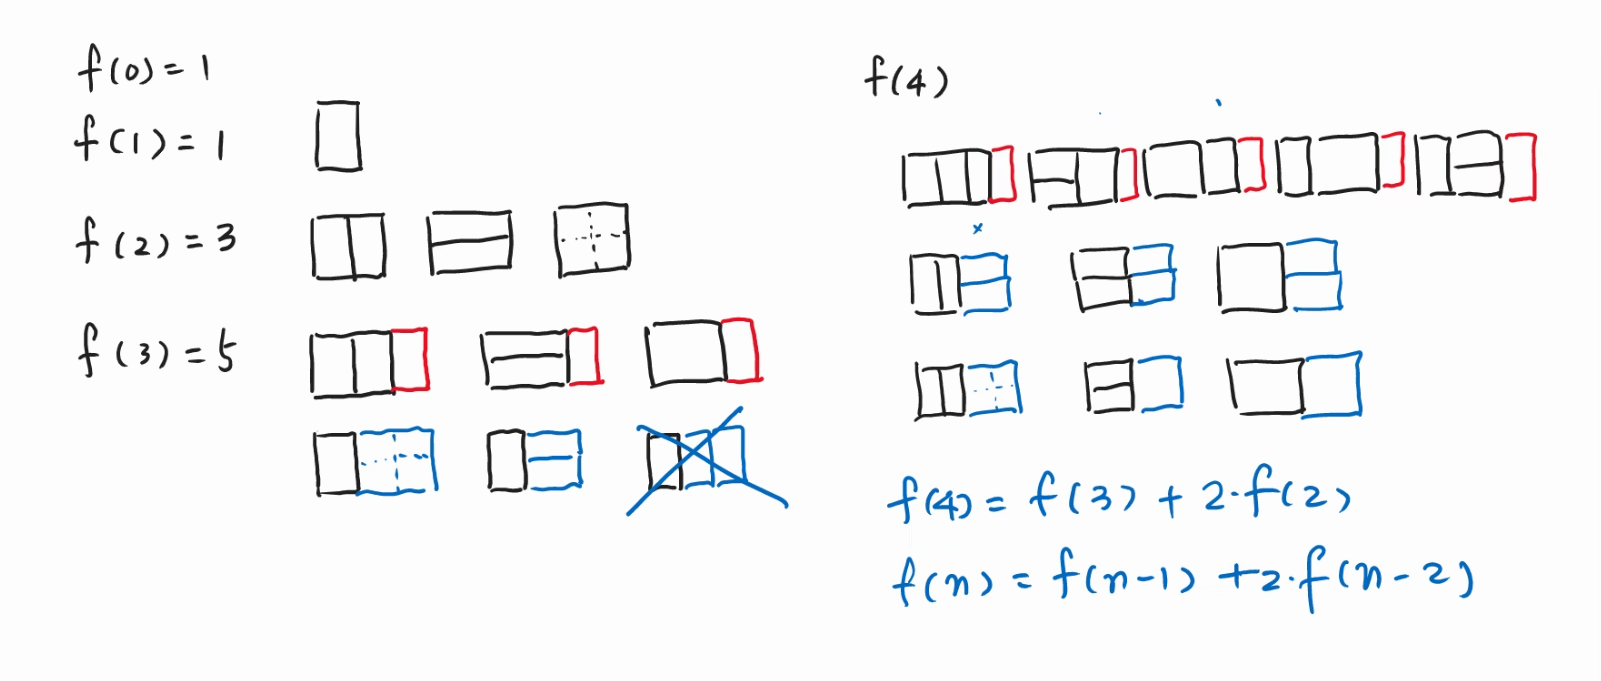 f(0) = 1
f(1) = 1
f(2) = 3
f(3) = 5
f(4)
f(4) = f(3) + 2·f(2)
f(n) = f(n-1) + 2·f(n-2)